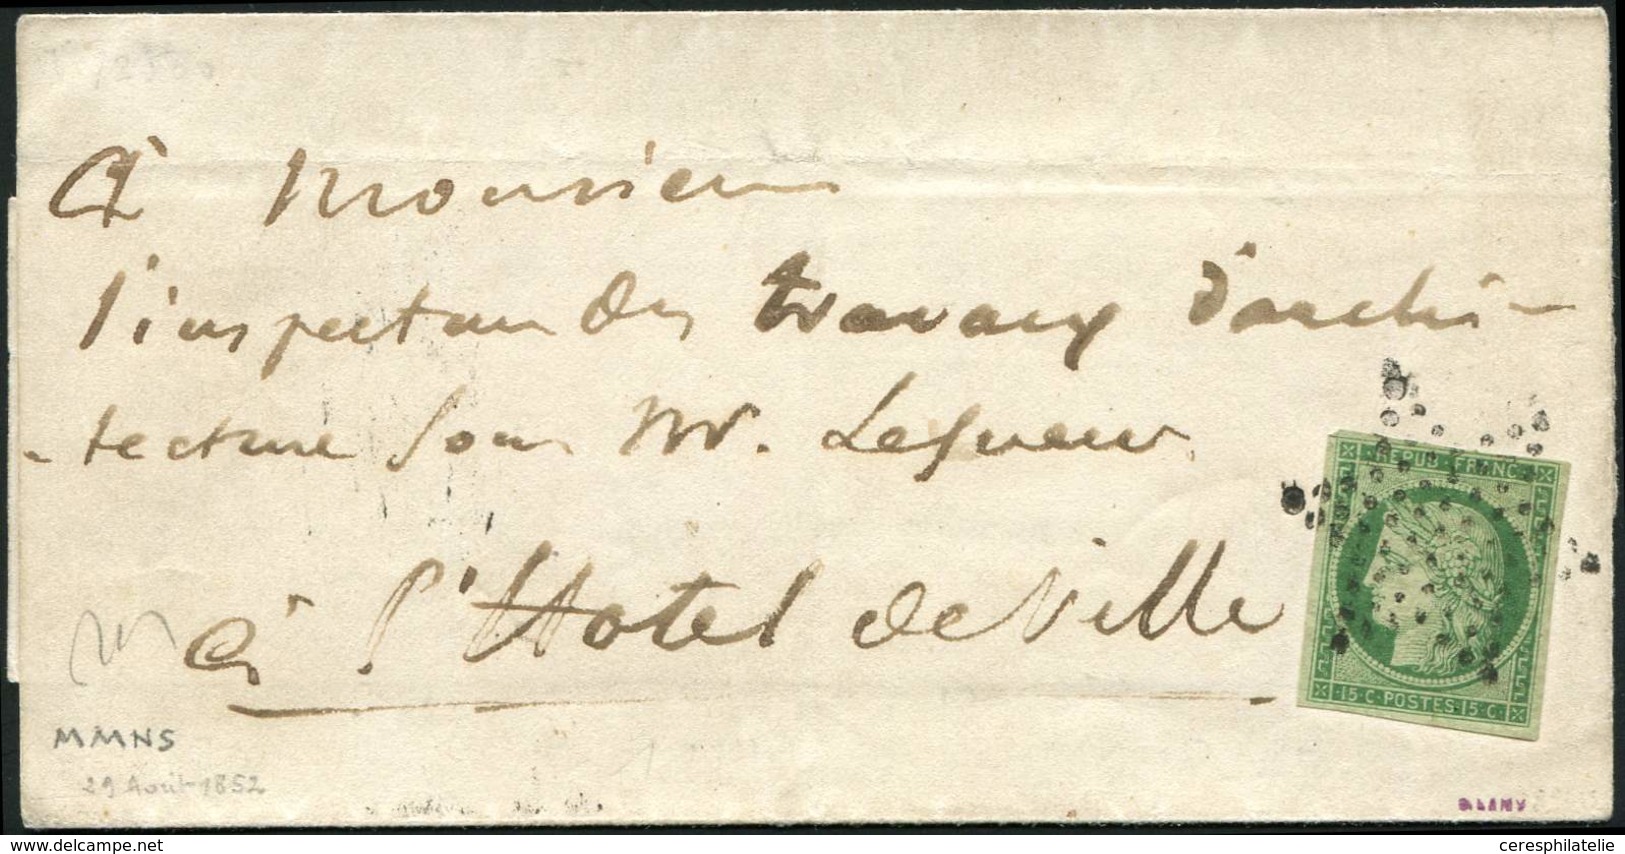 À Monsieur
l'inspecteur des travaux d'archi-
-tecture sous Mr. Lesueur
à l'Hotel de Ville
REPUB. FRANC.
15·C·POSTES·15·C·
MMNS
29 Août 1852
www.delcampe.net
ceresphilatelie